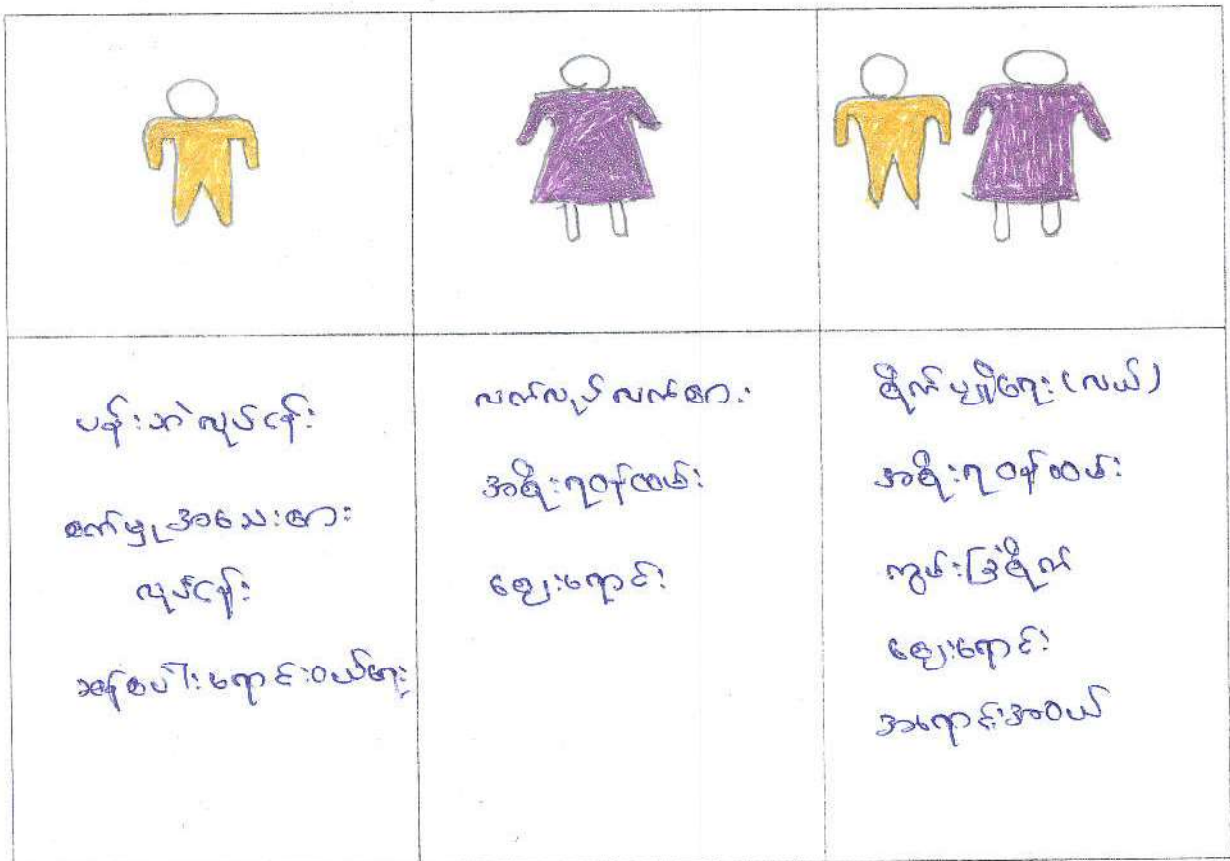 ပန်းဘဲလုပ်ငန်း
စက်မှုအသေးစား
လုပ်ငန်း
ဆန်စပါးရောင်းဝယ်ရေး
လက်လုပ်လက်စား
အစိုးရဝန်ထမ်း
ဈေးရောင်း
စိုက်ပျိုးရေး (လယ်)
အစိုးရ ဝန်ထမ်း
ကွမ်းခြံစိုက်
ဈေးရောင်း
အရောင်းအဝယ်